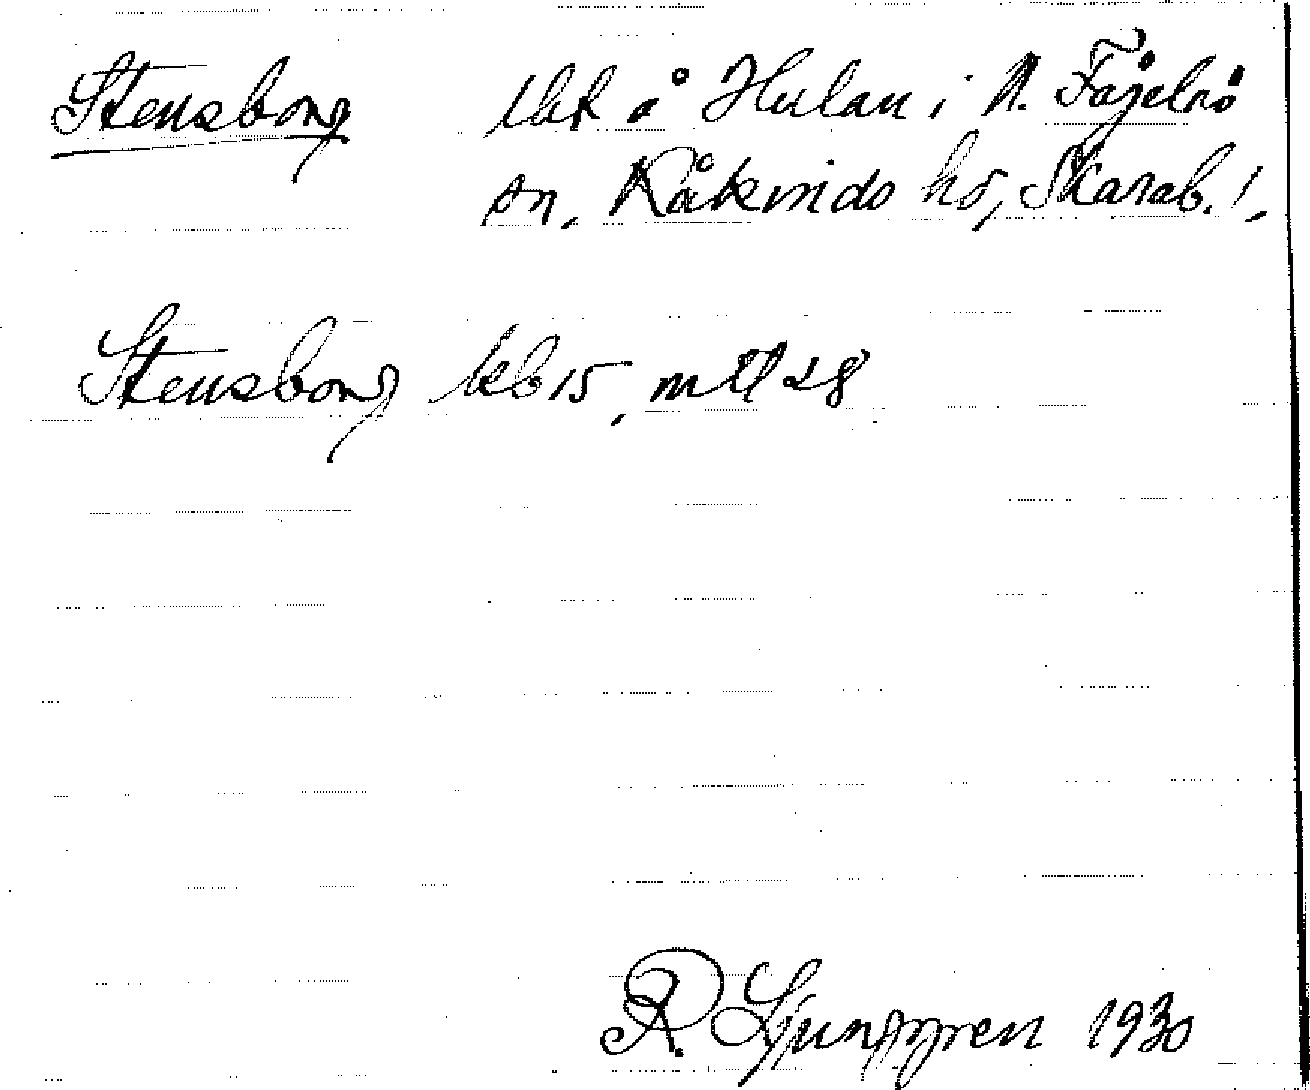 Stensborg lht å Hulan i N. Fågelås
sn, Kåkinds hd, Skarab. l.
Stensborg kb 15, mtl 28
R Ljunggren 1930